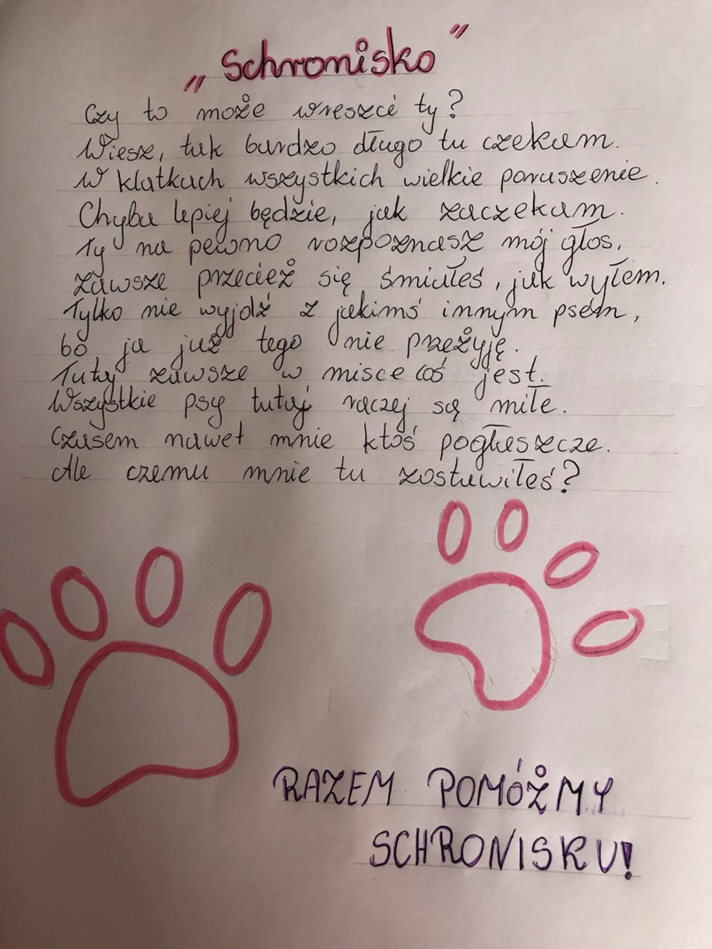 „Schronisko”
Czy to może wreszcé ty?
Wiesz, tak bardzo długo tu czekam.
W klatkach wszystkich wielkie poruszenie.
Chyba lepiej będzie, jak zaczekam.
Ty na pewno rozpoznasz mój głos,
zawsze przecież się śmiałeś, jak wyłem.
Tylko nie wyjdź z jakimś innym psem,
bo ja już tego nie przeżyję.
Tutaj zawsze w misce coś jest.
Wszystkie psy tutaj raczej są miłe.
Czasem nawet mnie ktoś pogłaszcze.
Ale czemu mnie tu zostawiłeś?
RAZEM POMÓŻMY
SCHRONISKU!